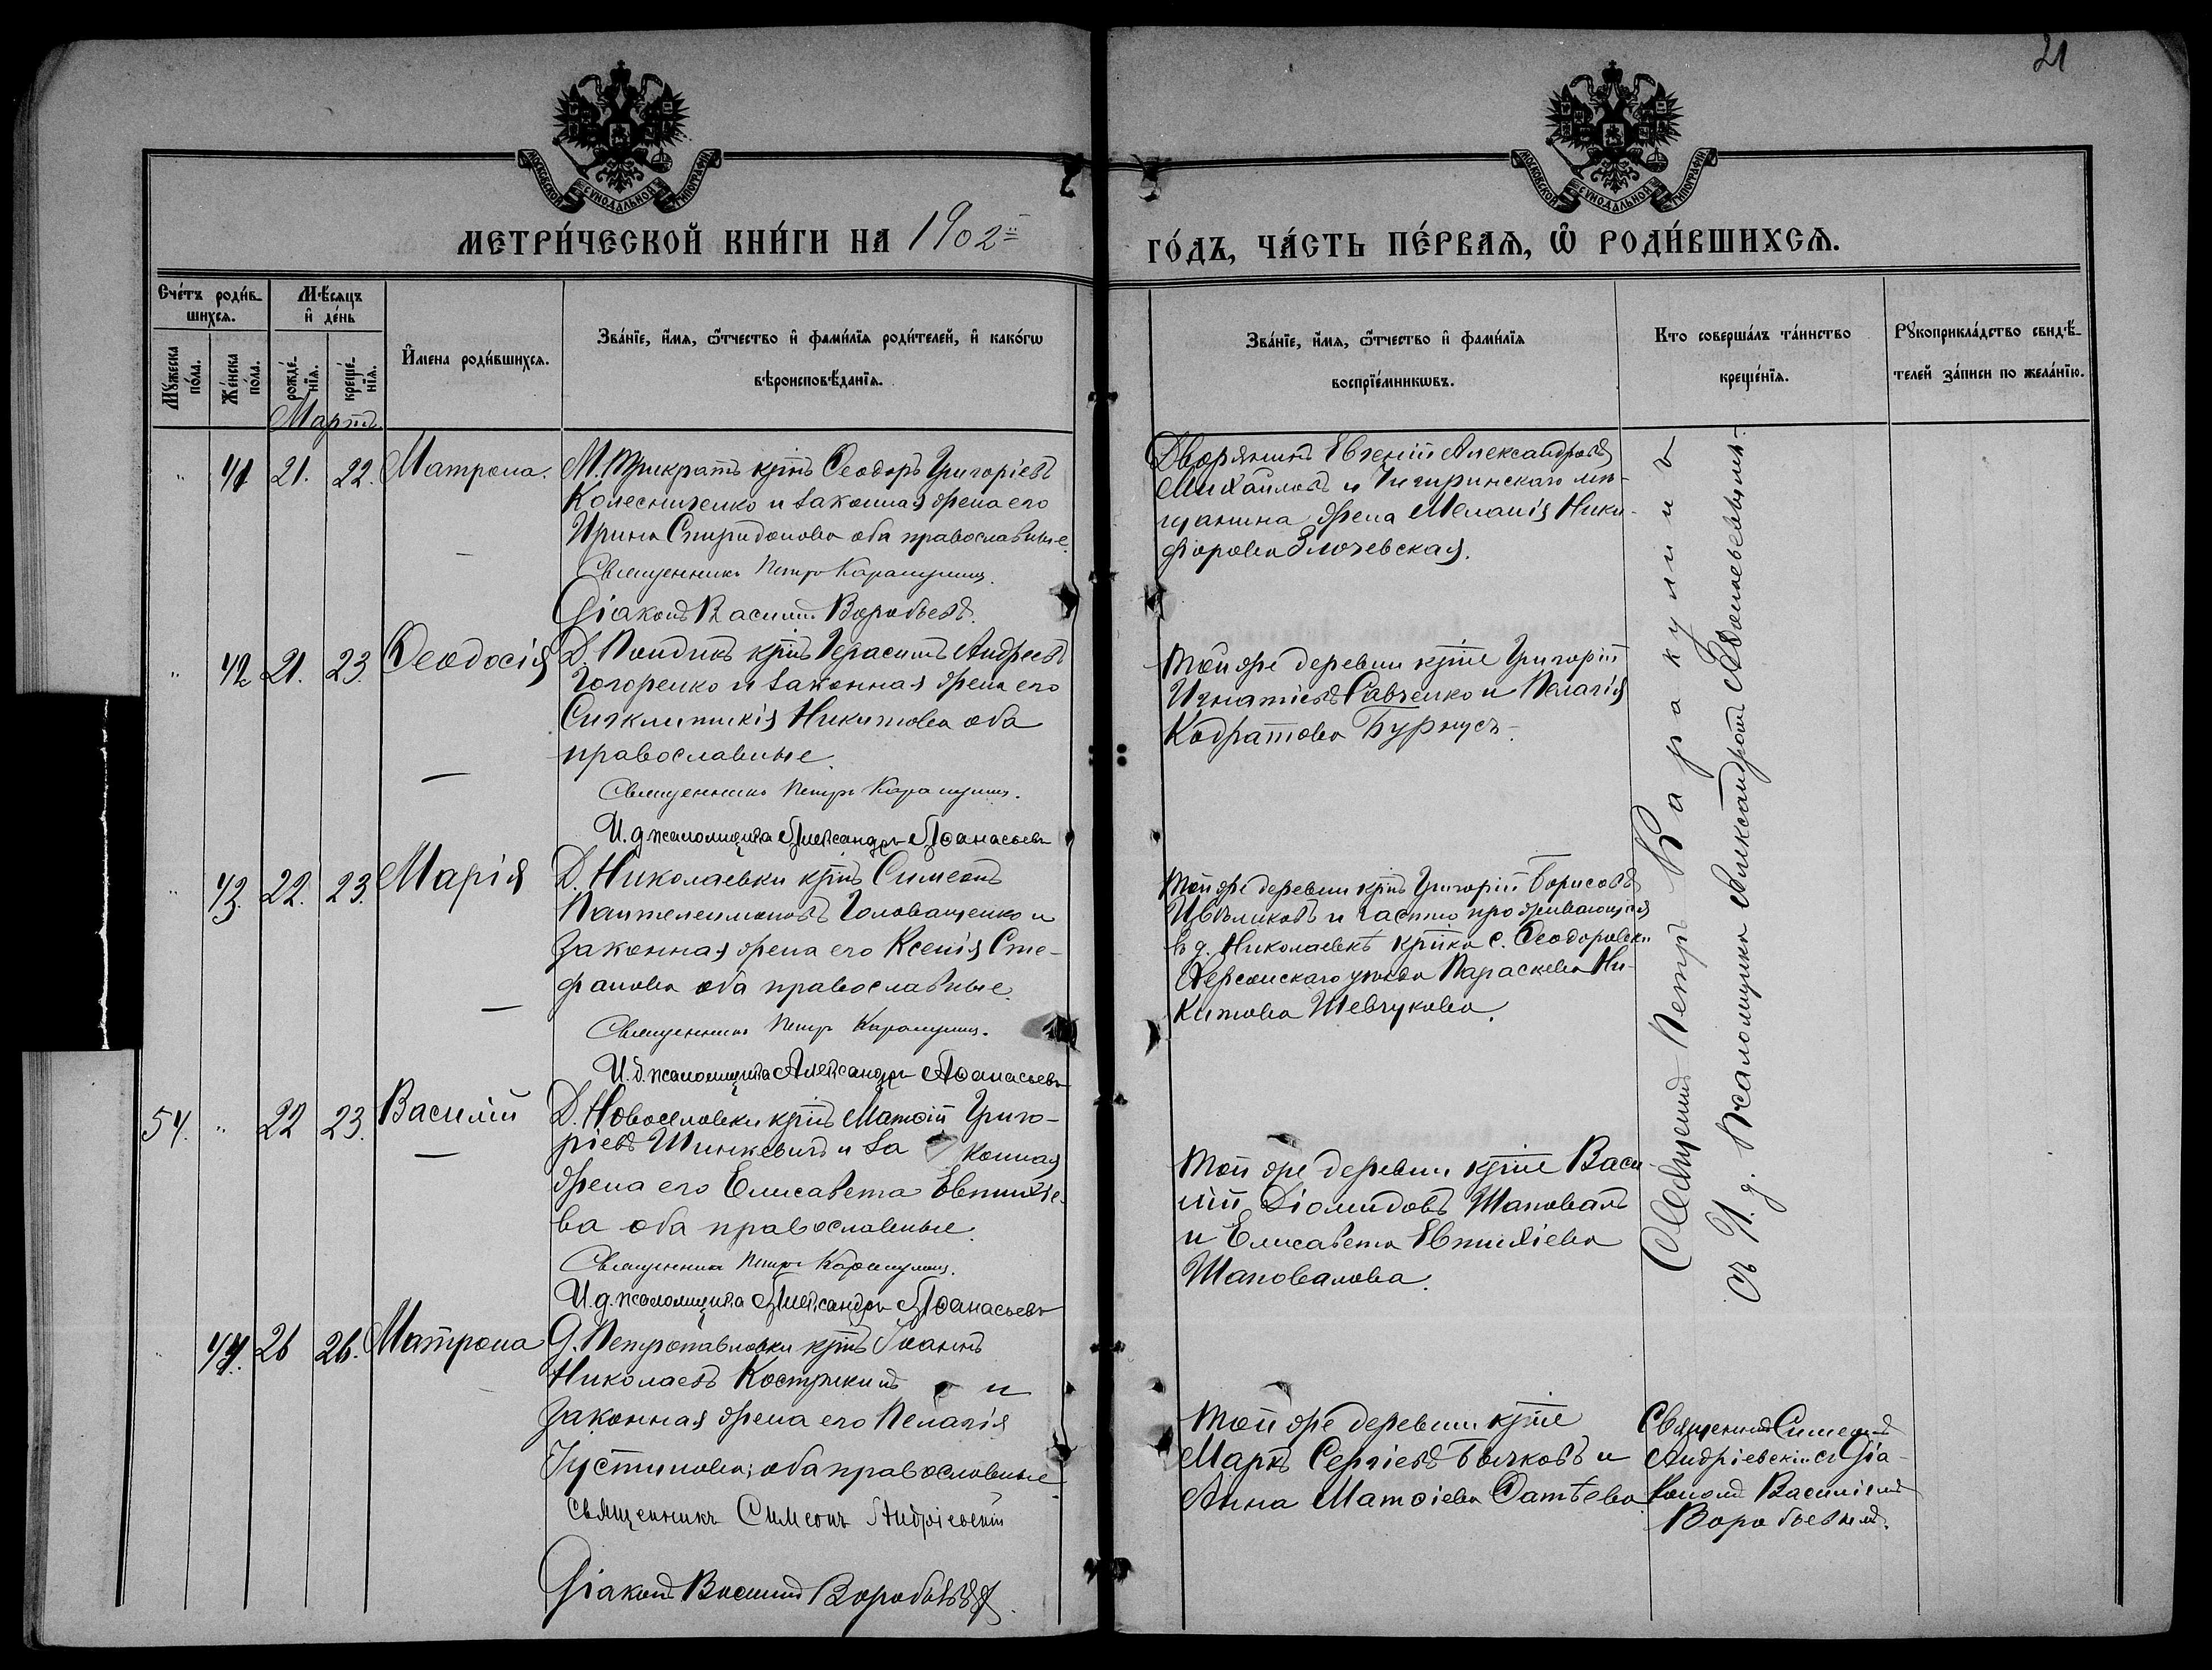 21
МОСКОВСКОЙ СѴНОДАЛЬНОЙ ТИПОГРАФІИ
МОСКОВСКОЙ СѴНОДАЛЬНОЙ ТИПОГРАФІИ
МЕТРИ́ЧЕСКОЙ КНИ́ГИ НА 1902
ГО́ДЪ, ЧА́СТЬ ПЕ́РВАѦ, Ѡ҆ РОДИ́ВШИХСѦ.
Сче́тъ роди́в-
шихсѧ.
Мꙋ́жеска по́ла.
Же́нска по́ла.
Мѣ́сѧцъ
и҆ де́нь
рожде́-
нїѧ.
креще́-
нїѧ.
И҆мена роди́вшихсѧ.
Зва́нїе, и҆́мѧ, ѻ҆́тчество и҆ фами́лїѧ роди́телей, и҆ како́гѡ
вѣроисповѣ́данїѧ.
Зва́нїе, и҆́мѧ, ѻ҆́тчество и҆ фами́лїѧ
воспрїе́мникѡвъ.
Кто соверша́лъ та́инство
креще́нїѧ.
Рꙋкоприкла́дство свидѣ́-
телей за́писи по жела́нїю.
Мартъ
" 41 21. 22. Матрона.
М. Трикратъ крнъ Ѳеодоръ Григоріевъ
Колесниченко и законная жена его
Ирина Спиридонова оба православные.
Священникъ Петръ Каракулинъ.
Діаконъ Василій Воробьевъ.
Дворянинъ Евгеній Александровъ
Михайловъ и Чигиринскаго мѣ-
щанина жена Меланія Ники-
форова Злочевская.
" 42 21. 23. Ѳеодосія
Д. Пондикъ крнъ Герасимъ Андреевъ
Гогоренко и законная жена его
Сигклитикія Никитова оба
православные.
Священникъ Петръ Каракулинъ.
И. д. псаломщика Александръ Аѳанасьевъ
Той же деревни крне Григорій
Игнатіевъ Савченко и Пелагія
Кодратова Бурнусъ.
" 43. 22. 23. Марія
Д. Николаевки крнъ Симеонъ
Пантелеимоновъ Головащенко и
законная жена его Ксенія Сте-
фанова оба православные.
Священникъ Петръ Каракулинъ.
И. д. псаломщика Александръ Аѳанасьевъ
Той же деревни крнъ Григорій Борисовъ
Цвѣликовъ и часто проживающая
въ д. Николаевкѣ крнка с. Ѳеодоровки
Херсонскаго уѣзда Параскева Ни-
китова Шевчукова.
54. " 22 23. Василій
Д. Новоселовки крнъ Матѳій Григо-
ріевъ Шинкевичъ и за конная
жена его Елисавета Евтихіе-
ва оба православные.
Священникъ Петръ Каракулинъ.
И. д. псаломщика Александръ Аѳанасьевъ
Той же деревни крне Васи-
лій Діомидовъ Шаповалъ
и Елисавета Евтихіева
Шаповалова.
" 44. 26 26. Матрона
Д. Петропавловки крнъ Іоаннъ
Николаевъ Кострикинъ и
законная жена его Пелагія
Іустинова; оба православные
Священникъ Симеонъ Андріевскій
Діаконъ Василій Воробьевъ.
Той же деревни крне
Маркъ Сергіевъ Бычковъ и
Анна Матѳіева Фатѣева
Священникъ Петръ Каракулинъ
съ И. д. Псаломщика Александромъ Аѳанасьевымъ.
Священникъ Симеонъ
Андріевскій съ Діа-
кономъ Василіемъ
Воробьевымъ.